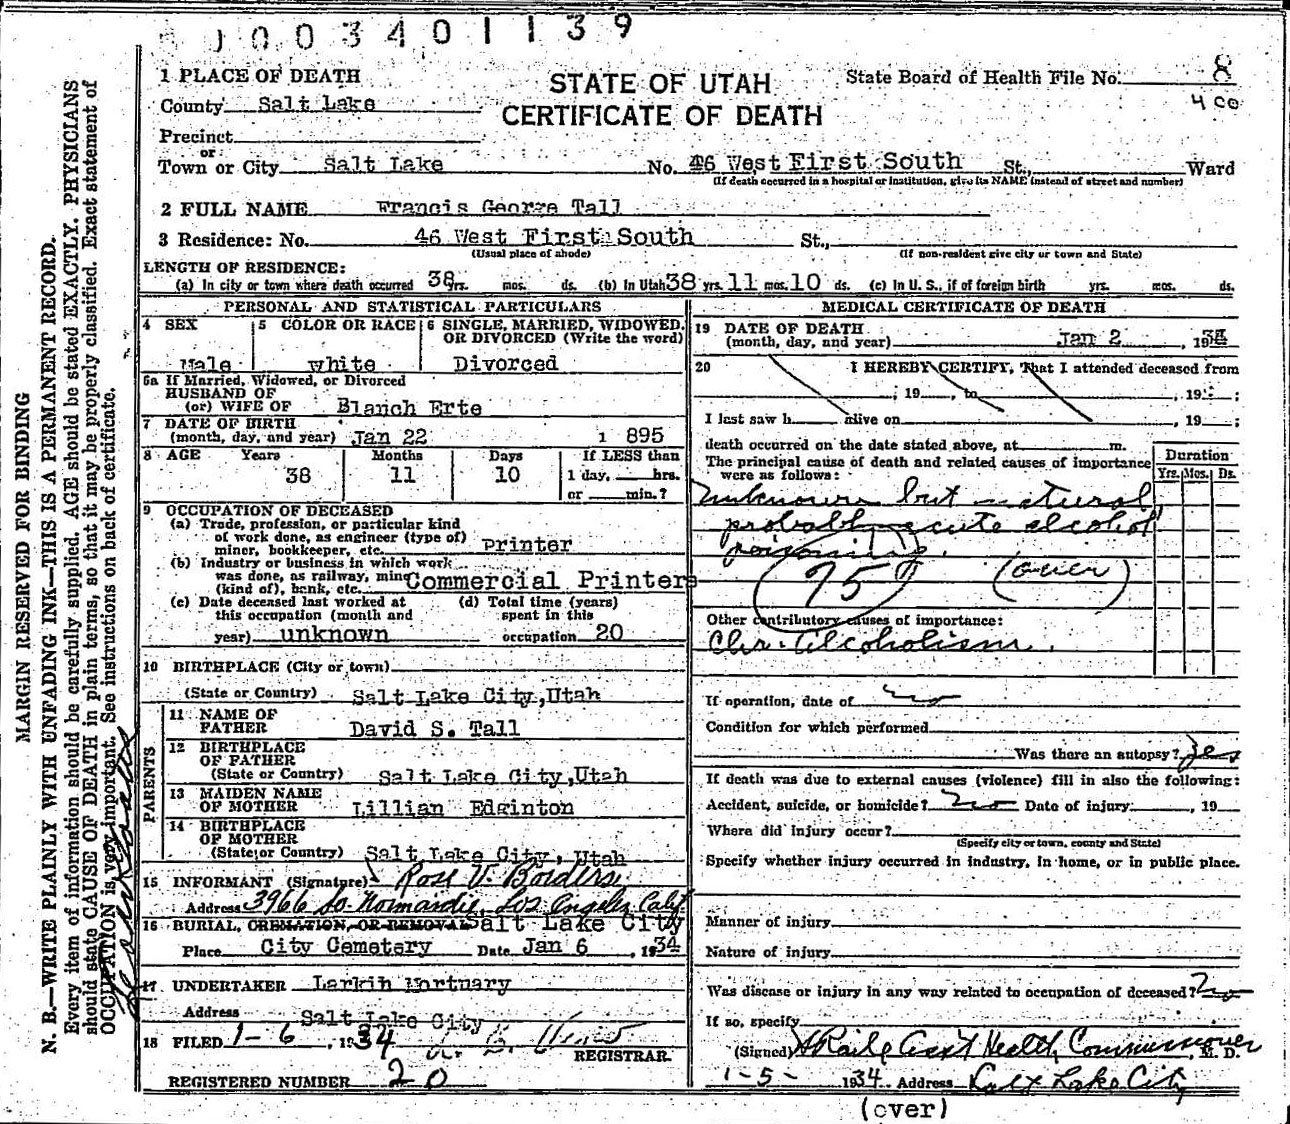 1003401139
STATE OF UTAH
CERTIFICATE OF DEATH
State Board of Health File No. 8
400
1 PLACE OF DEATH
County Salt Lake
Precinct
or
Town or City Salt Lake No. 46 West First South St., Ward
(If death occurred in a hospital or institution, give its NAME instead of street and number)
2 FULL NAME Francis George Tall
3 Residence: No. 46 West First South St.,
(Usual place of abode) (If non-resident give city or town and State)
LENGTH OF RESIDENCE:
(a) In city or town where death occurred 38 yrs. mos. ds. (b) In Utah 38 yrs. 11 mos. 10 ds. (c) In U. S., if of foreign birth yrs. mos. ds.
PERSONAL AND STATISTICAL PARTICULARS
4 SEX 5 COLOR OR RACE 6 SINGLE, MARRIED, WIDOWED, OR DIVORCED (Write the word)
Male white Divorced
5a If Married, Widowed, or Divorced
HUSBAND OF
(or) WIFE OF Blanch Erte
7 DATE OF BIRTH
(month, day, and year) Jan 22 1 895
8 AGE Years Months Days If LESS than
38 11 10 1 day, hrs.
or min.?
9 OCCUPATION OF DECEASED
(a) Trade, profession, or particular kind
of work done, as engineer (type of)
miner, bookkeeper, etc. Printer
(b) Industry or business in which work
was done, as railway, mine
(kind of), bank, etc. Commercial Printers
(c) Date deceased last worked at (d) Total time (years)
this occupation (month and spent in this
year) unknown occupation 20
10 BIRTHPLACE (City or town)
(State or Country) Salt Lake City, Utah
PARENTS
11 NAME OF
FATHER David S. Tall
12 BIRTHPLACE
OF FATHER
(State or Country) Salt Lake City, Utah
13 MAIDEN NAME
OF MOTHER Lillian Edginton
14 BIRTHPLACE
OF MOTHER
(State or Country) Salt Lake City, Utah
15 INFORMANT (Signature) Rose V. Borders
Address 3966 So Normandie, Los Angeles Calif
16 BURIAL, CREMATION, OR REMOVAL Salt Lake City
Place City Cemetery Date Jan 6, 1934
17 UNDERTAKER Larkin Mortuary
Address Salt Lake City
18 FILED 1-6, 1934
REGISTRAR.
REGISTERED NUMBER 20
MEDICAL CERTIFICATE OF DEATH
19 DATE OF DEATH
(month, day, and year) Jan 2, 1934
20 I HEREBY CERTIFY, That I attended deceased from
, 19 , to , 19 ;
I last saw h alive on , 19 ;
death occurred on the date stated above, at m.
The principal cause of death and related causes of importance
were as follows:
Duration
Yrs. Mos. Ds.
unknown but natural
probably acute alcohol
poisoning.
75 (over)
Other contributory causes of importance:
Chr. Alcoholism.
If operation, date of no
Condition for which performed
Was there an autopsy? yes
If death was due to external causes (violence) fill in also the following:
Accident, suicide, or homicide? no Date of injury , 19
Where did injury occur?
(Specify city or town, county and State)
Specify whether injury occurred in industry, in home, or in public place.
Manner of injury
Nature of injury
Was disease or injury in any way related to occupation of deceased? No
If so, specify
(Signed) Asst Health Commissioner, M. D.
1-5- 1934 Address Salt Lake City
(over)
MARGIN RESERVED FOR BINDING
N. B.—WRITE PLAINLY WITH UNFADING INK—THIS IS A PERMANENT RECORD.
Every item of information should be carefully supplied. AGE should be stated EXACTLY. PHYSICIANS
should state CAUSE OF DEATH in plain terms, so that it may be properly classified. Exact statement of
OCCUPATION is very important. See instructions on back of certificate.